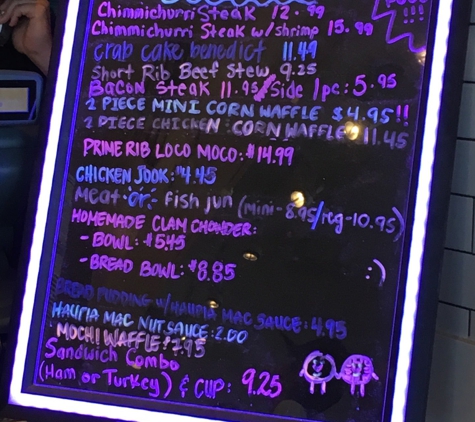 Chimmichurri Steak 12.99
Chimmichurri Steak w/shrimp 15.99
Crab cake benedict 11.49
Short Rib Beef Stew 9.25
Bacon Steak 11.95/Side 1pc: 5.95
2 PIECE MINI CORN WAFFLE $4.95!!
2 PIECE CHICKEN CORN WAFFLE 11.45
PRIME RIB LOCO MOCO: $14.99
CHICKEN JOOK: $4.45
Meat or fish jun (mini-8.95/reg-10.95)
HOMEMADE CLAM CHOWDER:
- BOWL: $5.45
- BREAD BOWL: $8.85
:)
BREAD PUDDING W/HAUPIA MAC SAUCE: 4.95
HAUPIA MAC NUT SAUCE: 2.00
MOCHI WAFFLE: 7.95
Sandwich Combo
(Ham or Turkey) & CUP: 9.25